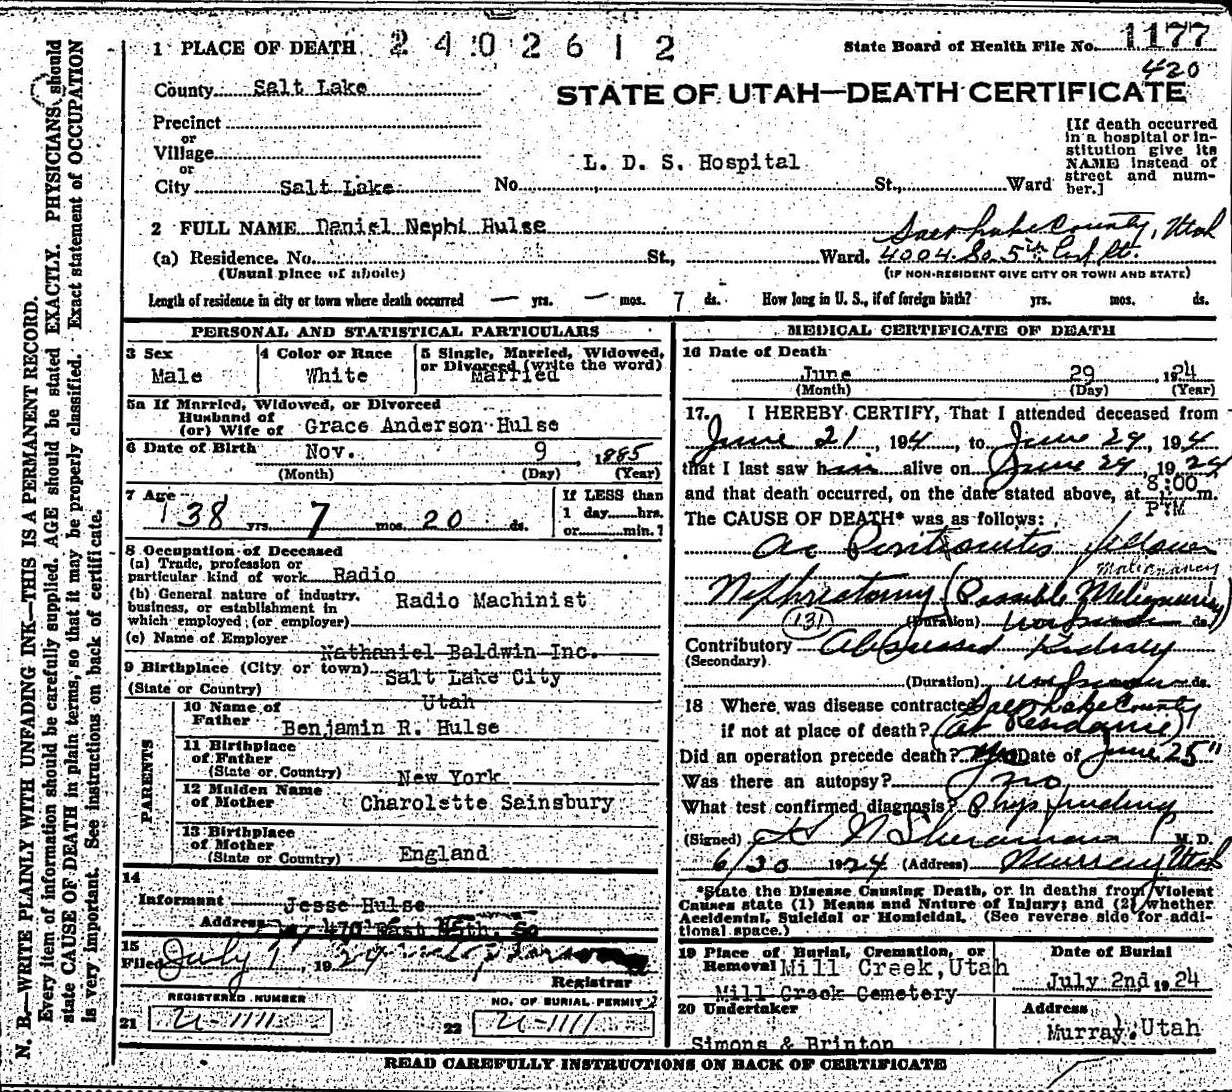 1 PLACE OF DEATH 2402612
State Board of Health File No. 1177
420
County Salt Lake
STATE OF UTAH—DEATH CERTIFICATE
Precinct
or
Village
or
City Salt Lake No. L. D. S. Hospital St., Ward
[If death occurred
in a hospital or in-
stitution give its
NAME instead of
street and num-
ber.]
2 FULL NAME Daniel Nephi Hulse
Salt Lake County, Utah
(a) Residence. No. St., Ward. 4004 So. 5th East St.
(Usual place of abode)
(IF NON-RESIDENT GIVE CITY OR TOWN AND STATE)
Length of residence in city or town where death occurred — yrs. — mos. 7 ds. How long in U. S., if of foreign birth? yrs. mos. ds.
PERSONAL AND STATISTICAL PARTICULARS
3 Sex
Male
4 Color or Race
White
5 Single, Married, Widowed,
or Divorced (write the word)
Married
5a If Married, Widowed, or Divorced
Husband of
(or) Wife of Grace Anderson Hulse
6 Date of Birth Nov. 9 1885
(Month) (Day) (Year)
7 Age 38 yrs. 7 mos. 20 ds.
If LESS than
1 day hrs.
or min.?
8 Occupation of Deceased
(a) Trade, profession or
particular kind of work Radio
(b) General nature of industry,
business, or establishment in
which employed (or employer) Radio Machinist
(c) Name of Employer
Nathaniel Baldwin Inc.
9 Birthplace (City or town) Salt Lake City
(State or Country) Utah
PARENTS
10 Name of
Father Benjamin R. Hulse
11 Birthplace
of Father
(State or Country) New York
12 Maiden Name
of Mother Charolette Sainsbury
13 Birthplace
of Mother
(State or Country) England
14
Informant Jesse Hulse
Address 470 East 45th. So
15
Filed July 1, 1924
Registrar
REGISTERED NUMBER
21 U-1111
NO. OF BURIAL PERMIT
22 U-1111
MEDICAL CERTIFICATE OF DEATH
16 Date of Death
June 29 1924
(Month) (Day) (Year)
17. I HEREBY CERTIFY, That I attended deceased from
June 21, 194, to June 29, 194
that I last saw him alive on June 29, 1924
and that death occurred, on the date stated above, at 8:00 m.
PM
The CAUSE OF DEATH* was as follows:
Ac Peritonitis follower
Malignancy
Nephrectomy (Possible Malignancy)
131 (Duration) ds.
Contributory Abscessed Kidney
(Secondary)
(Duration) ds.
18 Where was disease contracted Salt Lake County
if not at place of death? (at Residence)
Did an operation precede death? Yes Date of June 25"
Was there an autopsy? no
What test confirmed diagnosis? Phys finding
(Signed) M. D.
6/30 1924 (Address) Murray Utah
*State the Disease Causing Death, or in deaths from Violent
Causes state (1) Means and Nature of Injury; and (2) whether
Accidental, Suicidal or Homicidal. (See reverse side for addi-
tional space.)
19 Place of Burial, Cremation, or
Removal Mill Creek, Utah
Mill Creek Cemetery
Date of Burial
July 2nd, 1924
20 Undertaker
Simons & Brinton
Address
Murray, Utah
READ CAREFULLY INSTRUCTIONS ON BACK OF CERTIFICATE
N. B.—WRITE PLAINLY WITH UNFADING INK—THIS IS A PERMANENT RECORD.
Every item of information should be carefully supplied. AGE should be stated EXACTLY. PHYSICIANS should
state CAUSE OF DEATH in plain terms, so that it may be properly classified. Exact statement of OCCUPATION
is very important. See instructions on back of certificate.